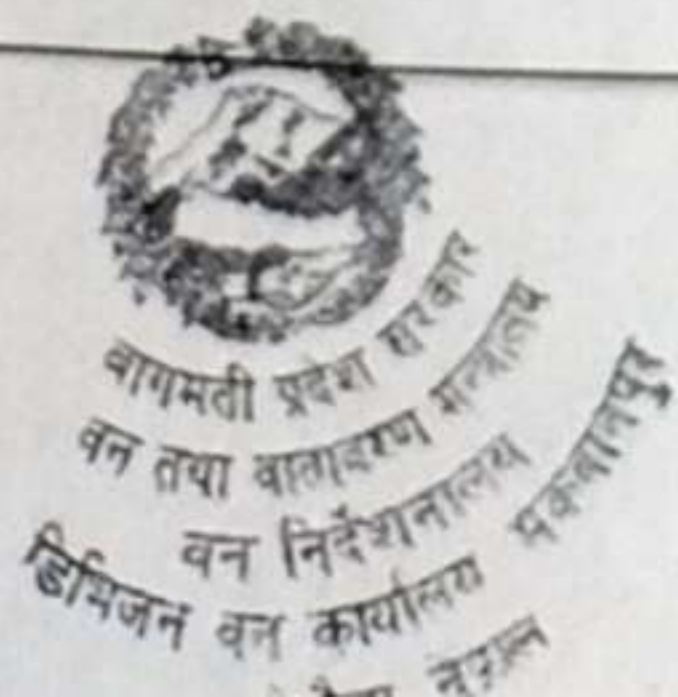 वागमती प्रदेश सरकार
वन तथा वातावरण मन्त्रालय
वन निर्देशनालय
डिभिजन वन कार्यालय मकवानपुर
नेपाल